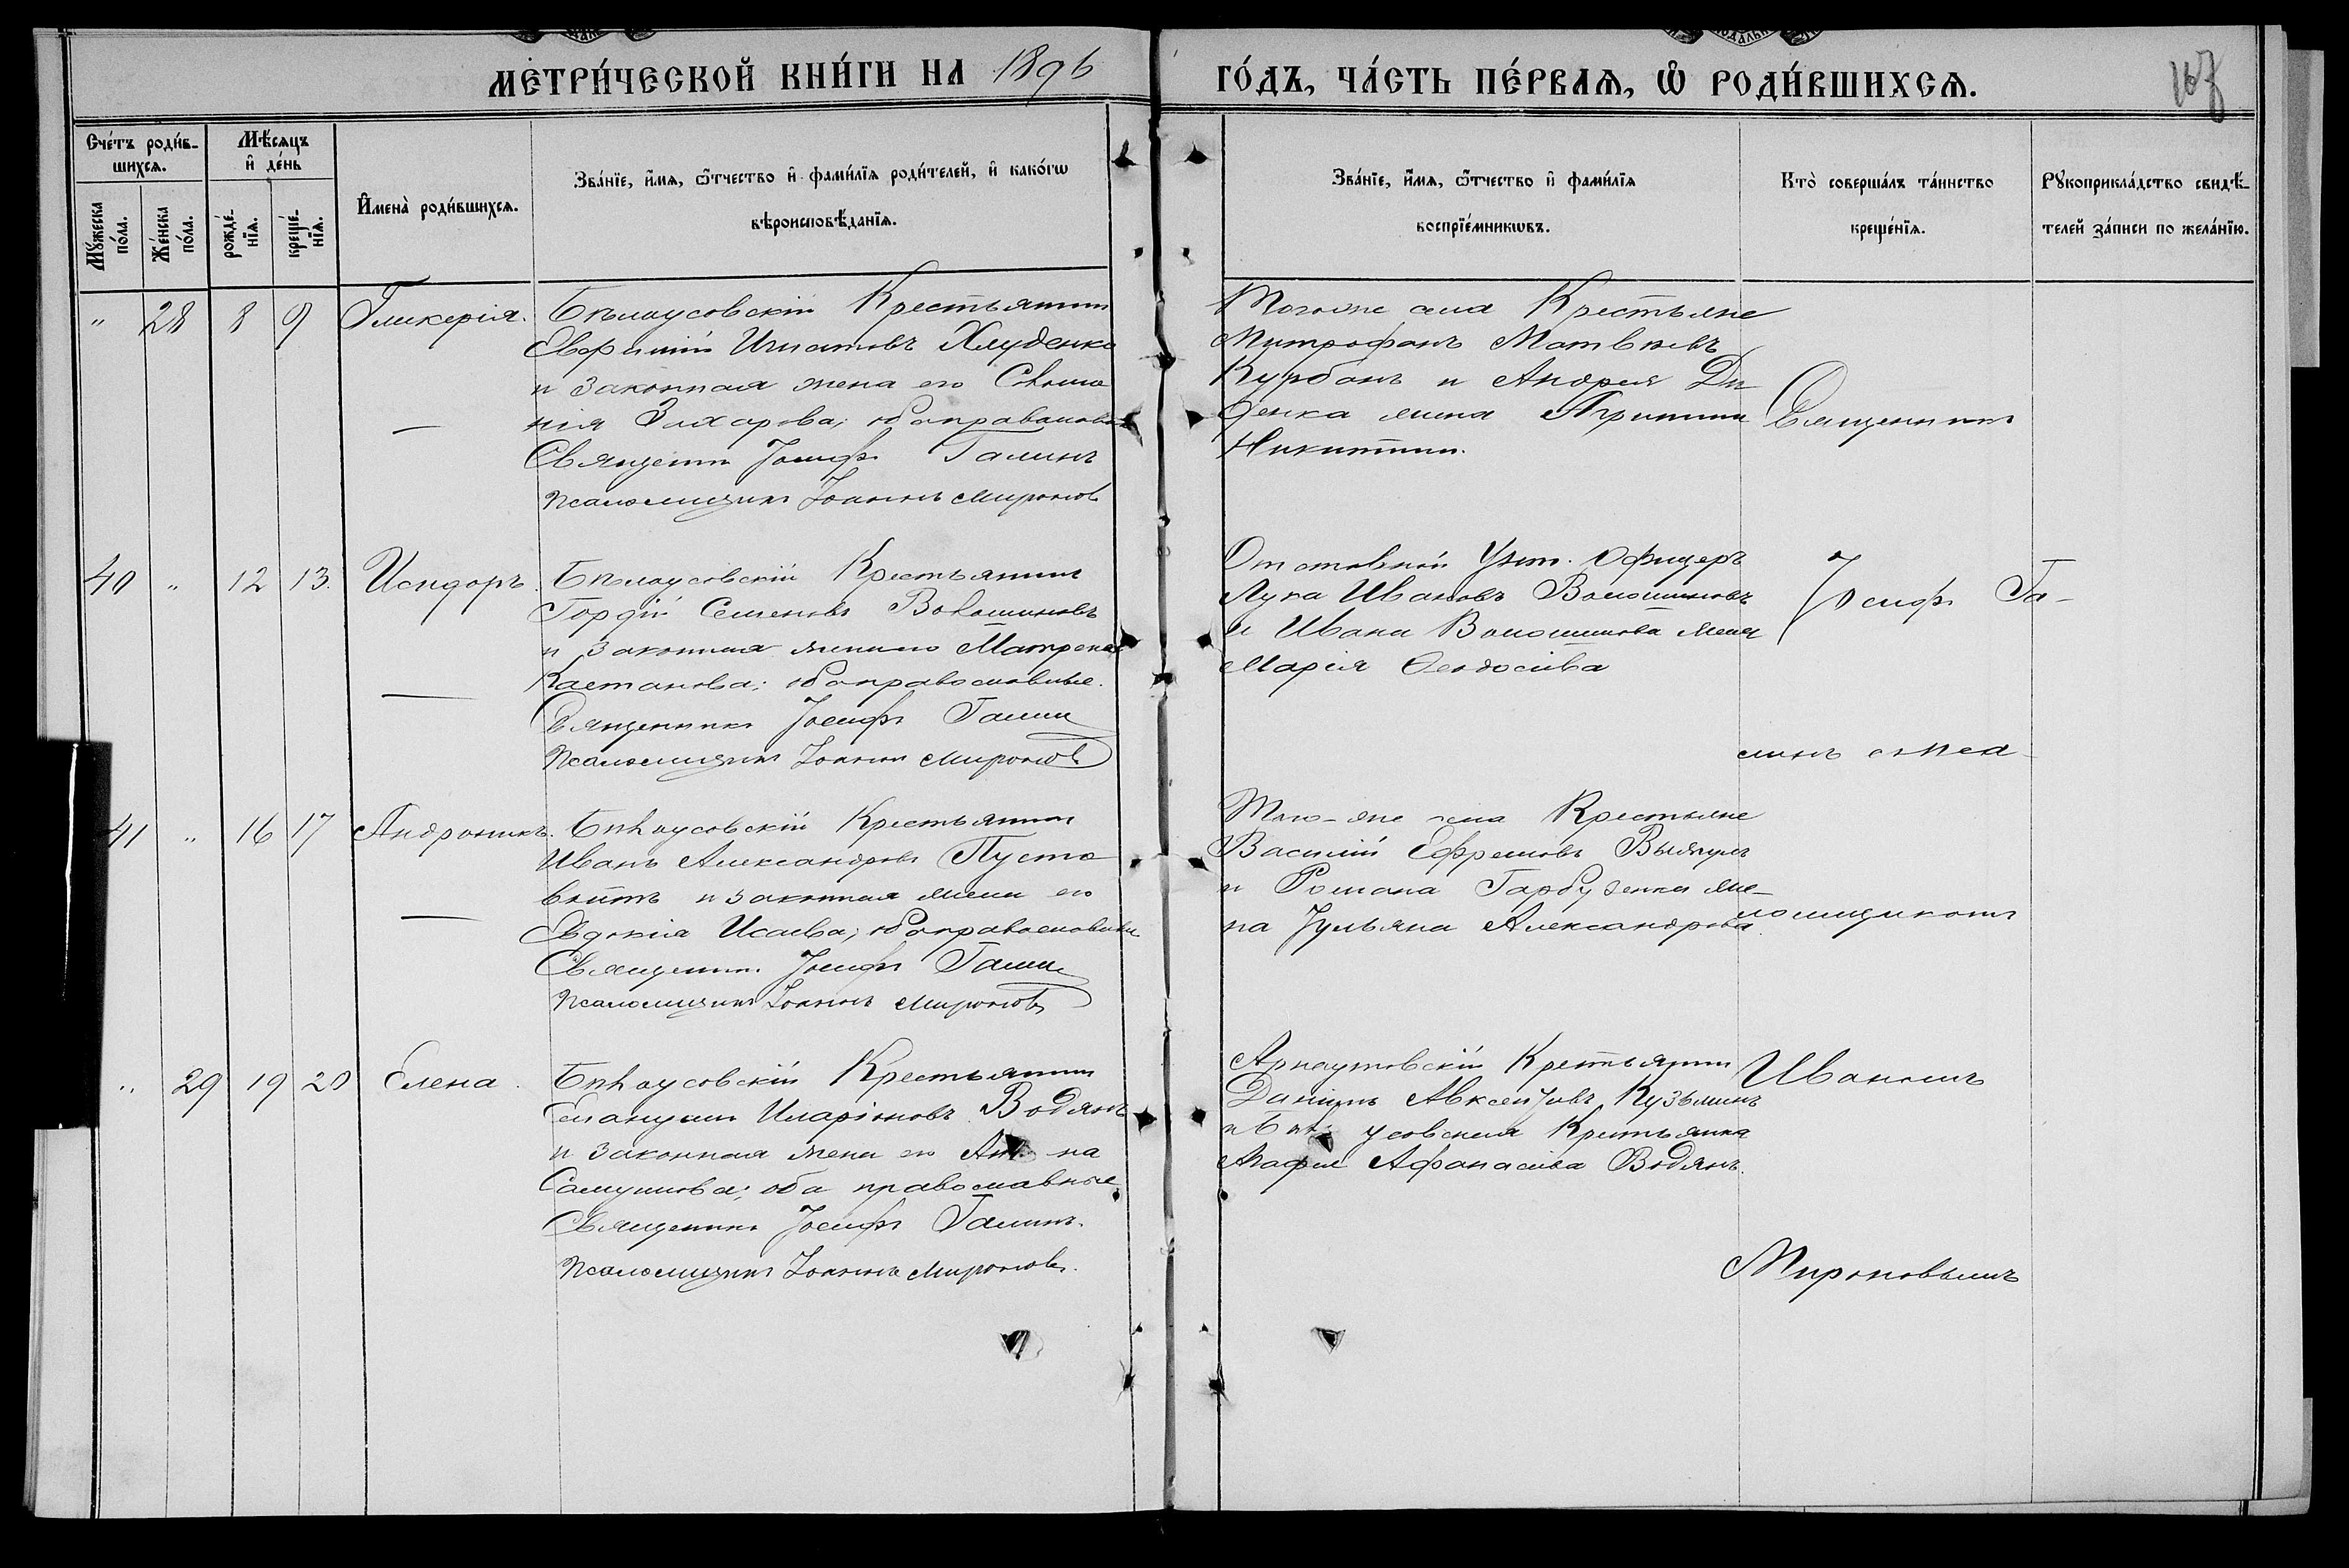 МЕТРИ́ЧЕСКОЙ КНИ́ГИ НА 1896
ГО́ДЪ, ЧА́СТЬ ПЕ́РВАѦ, Ѡ҆ РОДИ́ВШИХСѦ.
Сче́тъ роди́в-
шихсѧ.
Мѣ́сѧцъ
и҆ де́нь
Мꙋ́жеска
по́ла.
Же́нска
по́ла.
рожде́-
нїѧ.
креще́-
нїѧ.
И҆мена̀ роди́вшихсѧ.
Зва́нїе, и҆́мѧ, ѻ҆́тчество и҆ фами́лїѧ роди́телей, и҆ како́гѡ
вѣроисповѣ́данїѧ.
Зва́нїе, и҆́мѧ, ѻ҆́тчество и҆ фами́лїѧ
воспрїе́мникѡвъ.
Кто̀ соверша́лъ та́инство
креще́нїѧ.
Рꙋкоприкла́дство свидѣ́-
телей за́писи по жела́нїю.
" 28 8 9 Гликерія. Бѣлоусовскій Крестьянинъ
Игнатовъ Хлуденко
и законная жена его
Захарова; оба православные
Священникъ Іосифъ Галинъ
Псаломщикъ Іоаннъ Мироновъ
Того же села Крестьяне
Митрофанъ Матвѣевъ
Курбанъ и Андрея Ди
денка жена
Никитина.
40 " 12 13. Исидоръ. Бѣлоусовскій Крестьянинъ
Гордій Семеновъ Волошиновъ
и законная жена его Матрена
Каетанова; оба православные.
Священникъ Іосифъ Галинъ
Псаломщикъ Іоаннъ Мироновъ
Отставной Унт. Офицеръ
Лука Ивановъ Волошиновъ
и Ивана Волошинова жена
Марія Ѳеодосіева
41 " 16 17 Андроникъ. Бѣлоусовскій Крестьянинъ
Иванъ Александровъ Пусто
войтъ и законная жена его
Евдокія Исаева; оба православные
Священникъ Іосифъ Галинъ
Псаломщикъ Іоаннъ Мироновъ
Того-же села Крестьяне
Василій Ефремовъ
и Романа Гарбузенка же-
на Іульяна Александрова.
" 29 19 20 Елена. Бѣлоусовскій Крестьянинъ
Иларіоновъ Водянъ
и законная жена его
Самуилова; оба православные
Священникъ Іосифъ Галинъ.
Псаломщикъ Іоаннъ Мироновъ.
Арнаутовскій Крестьянинъ
Даніилъ Авксентіевъ Кузьминъ
и Крестьянка
Агафія Афанасіева Водянъ.
Священникъ
Іосифъ Га-
линъ съ Пса-
ломщикомъ
Иваномъ
Мироновымъ